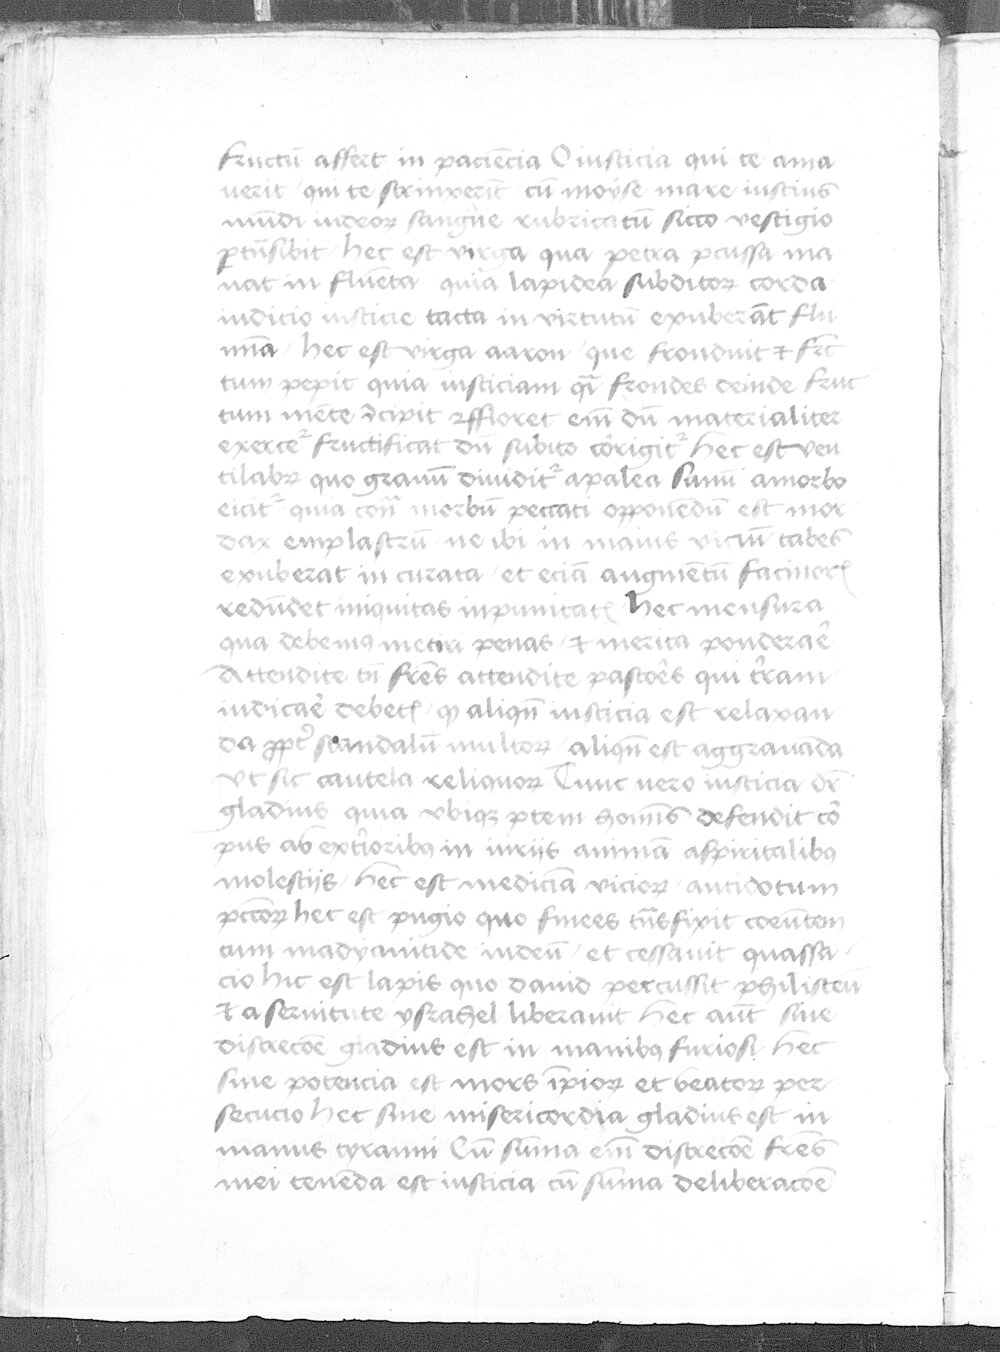 fructū affert in paciēcia O iusticia qui te ama
uerit / qui te strinxerit cū moÿse mare iustius
mūdi iudeoꝝ sangꝯne rubricatū sicco vestigio
ꝑtrāsibit / hec est virga qua petra ꝑcussa ma
nat in fluēta quia lapidea subditoꝝ corda
iudicio iusticie tacta in virtutū exuberāt flu
mīa / hec est virga aaron / que fronduit ⁊ fruc
tum peperit quia iusticiam qͣsi frondes deinde fruc
tum mēte ꝯcipit ⁊ffloret em̄ dū materialiter
exercetᷣ fructificat dū subito corrigitᷣ hec est ven
tilabrū quo granū diuiditᷣ a palea sanū a morbo
eicitᷣ quia contra morbū peccati opponēdū est mor
dax emplastrū ne ibi in maius viciū tabes
exuberat in curata / et eciā augmētū facinoris
redūdet iniquitas inpunitatis / Hec mensura
qua debemꝰ metiri penas / ⁊ merita ponderare
Attendite tn̄ fr̄es attendite pastores qui terram
iudicare debetis / ꝙ aliqn̄ iusticia est relaxan
da ꝓpter scandalū multoꝝ / aliqn̄ est aggrauāda
vt sit cautela reliquoꝝ Tunc uero iusticia dr̄
gladius quia vbiqꝫ ꝑtem homīs defendit cor
pus ab exterioribꝰ in iurijs animā a spiritalibꝰ
molestijs / hec est medicīa vicioꝝ / antidotum
pctōꝝ hec est pugio quo finees trāsfixit coeūtem
cum madyanitide iudeū / et cessauit quassa /
cio hic est lapis quo dauid percussit philisteū
⁊ a seruitute ysrahel liberauit hec aūt sine
discrecōe gladius est in manibꝰ furiosi hec
sine potencia est mors īpioꝝ et beatoꝝ per
secucio hec sine misericordia gladius est in
manus tyranni Cū sūma em̄ discrecōe fr̄es
mei tenēda est iusticia cū sūma deliberacōe